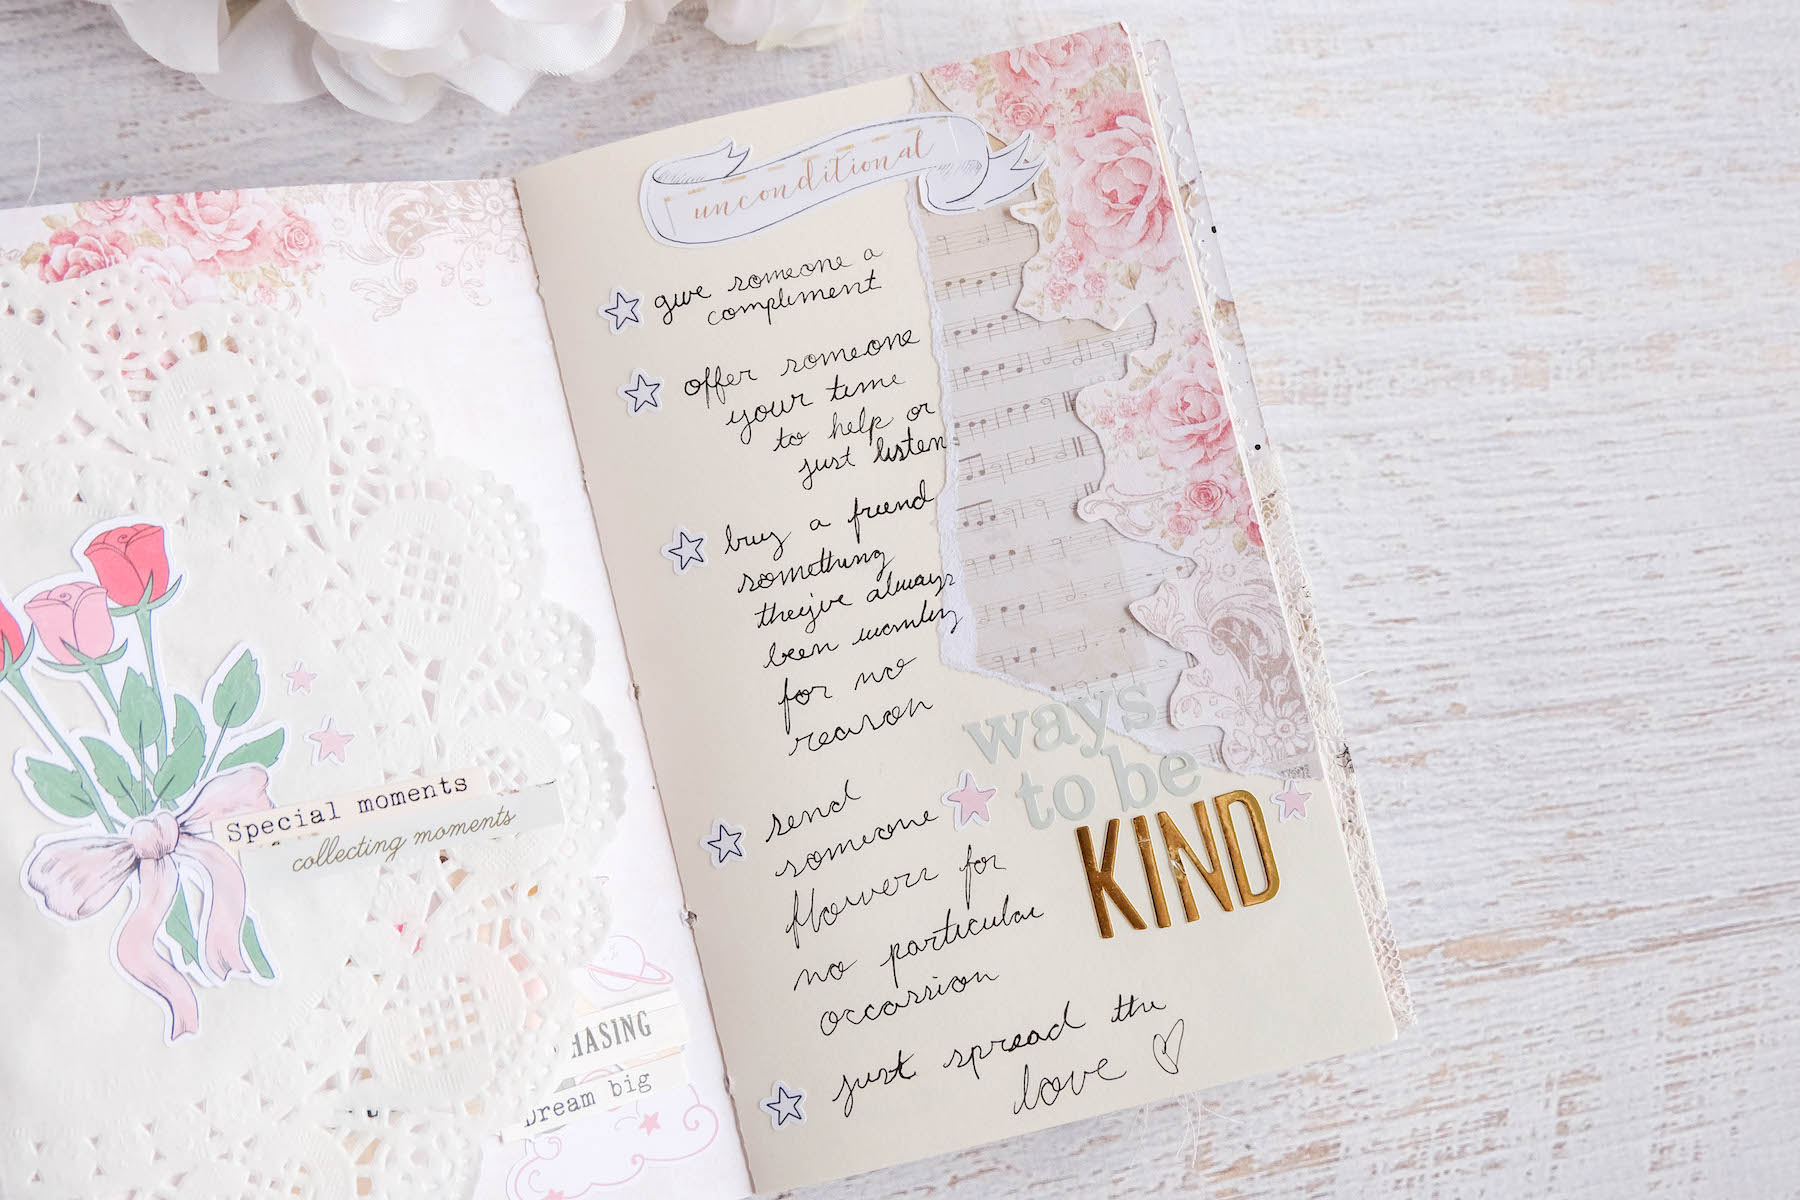 Special moments
collecting moments
HASING
Dream big
unconditional
give someone a
compliment
offer someone
your time
to help or
just listen
buy a friend
something
they've always
been wanting
for no
reason
send
someone
flowers for
no particular
occassion
just spread the
love
ways
to be
KIND